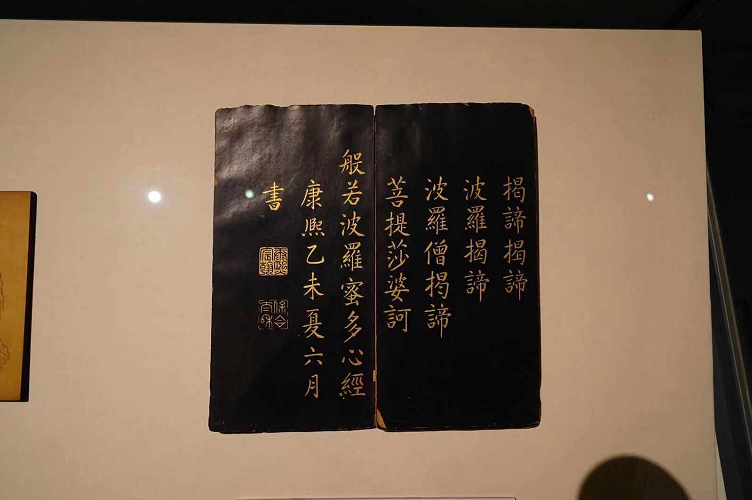 揭諦揭諦
波羅揭諦
波羅僧揭諦
菩提莎婆訶
般若波羅蜜多心經
康熙乙未夏六月
書
康熙宸翰
保合太和